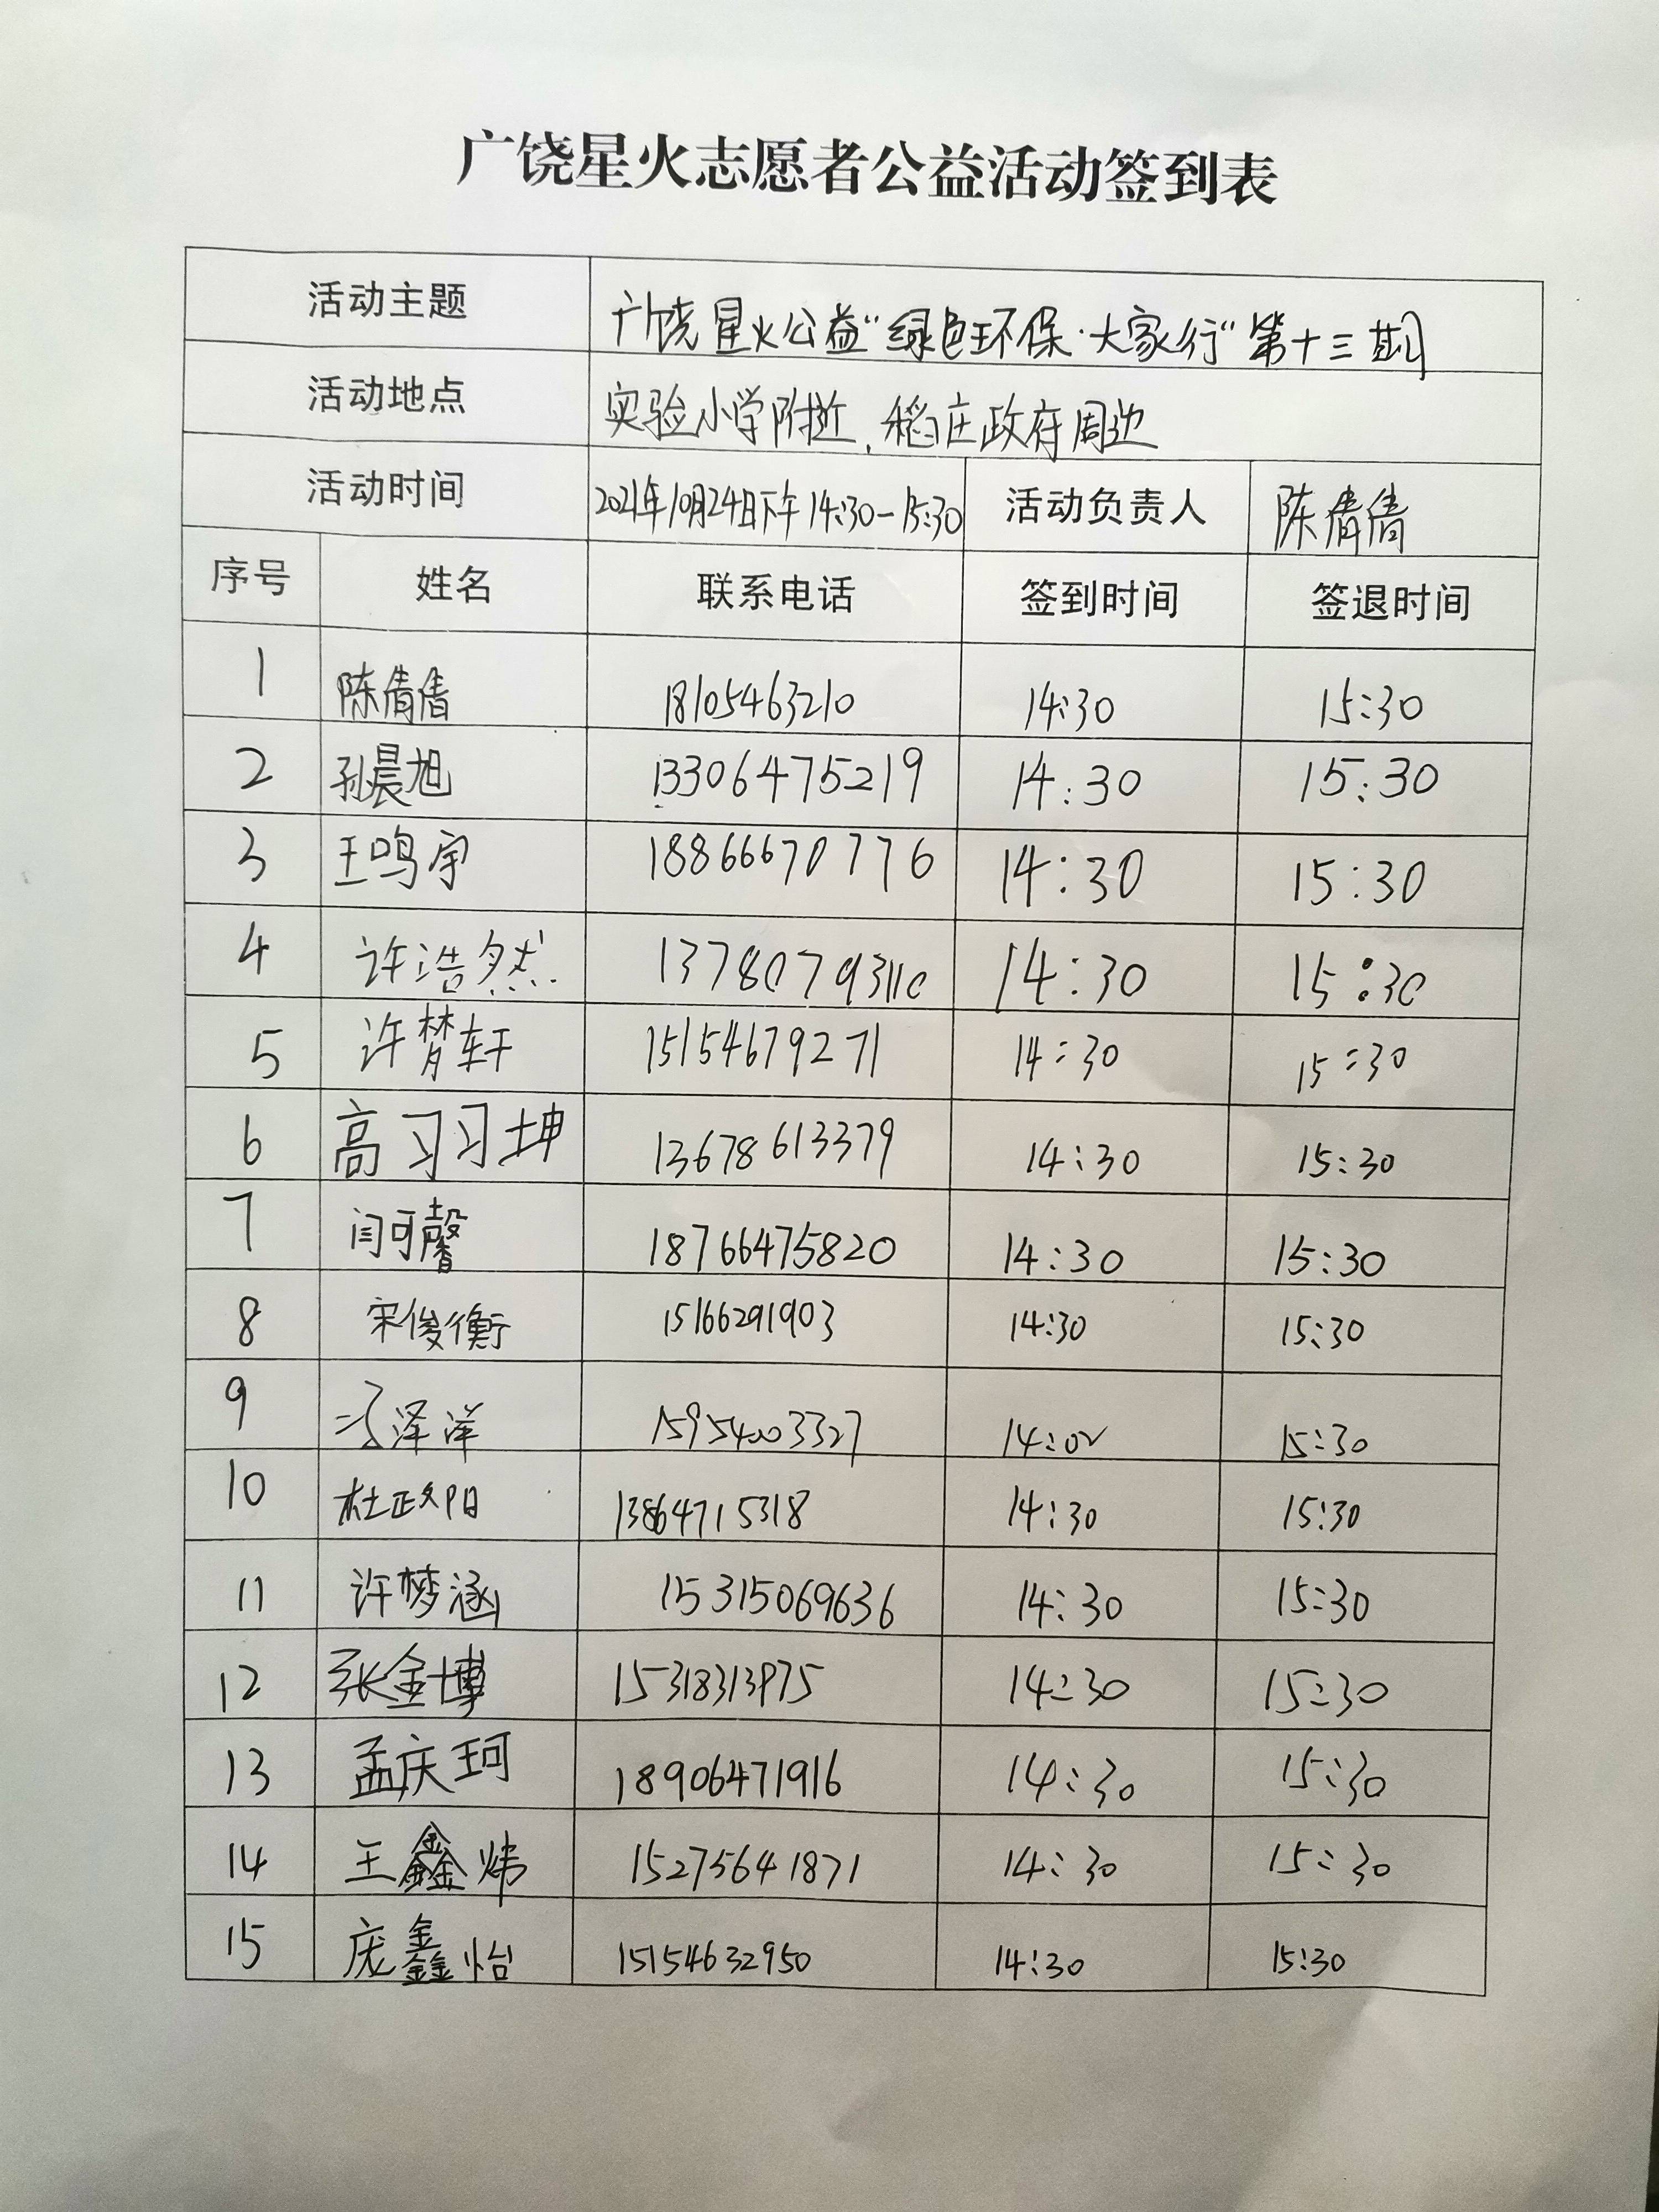 广饶星火志愿者公益活动签到表
活动主题 广饶星火公益“绿色环保·大家行”第十三期
活动地点 实验小学附近、稻庄政府周边
活动时间 2021年10月24日下午14:30-15:30 活动负责人 陈倩倩
序号 姓名 联系电话 签到时间 签退时间
1 陈倩倩 18105463210 14:30 15:30
2 孙晨旭 13306475219 14:30 15:30
3 王鸣宇 18866670776 14:30 15:30
4 许浩然 13780793110 14:30 15:30
5 许梦轩 15154679271 14:30 15:30
6 高习习坤 13678613379 14:30 15:30
7 闫可馨 18766475820 14:30 15:30
8 宋俊衡 15166291903 14:30 15:30
9 冯泽洋 15954003327 14:02 15:30
10 杜政阳 13864715318 14:30 15:30
11 许梦涵 15315069636 14:30 15:30
12 张金博 15318313975 14:30 15:30
13 孟庆珂 18906471916 14:30 15:30
14 王鑫炜 15275641871 14:30 15:30
15 庞鑫怡 15154632950 14:30 15:30